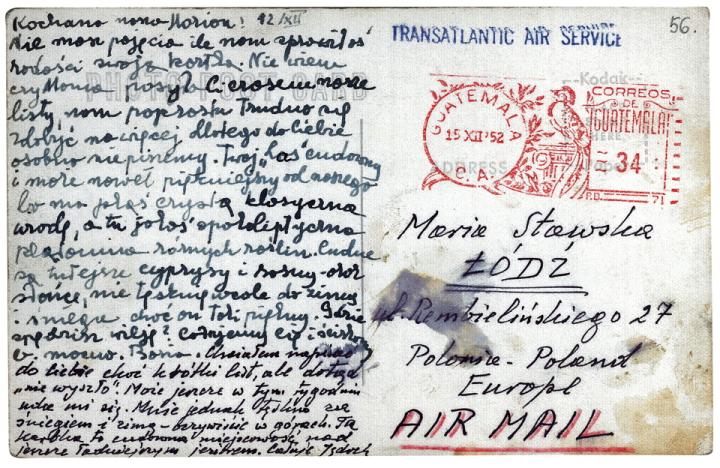 Kochana nasza Marion! 12/XII
Nie masz pojęcia ile nam sprawiłaś
radości swoją kartką. Nie wiem
czy Mama posyła Ci czasem nasze
listy, nam po prostu trudno się
zdobyć na więcej, dlatego do Ciebie
osobno nie piszemy. Twój "las" cudowny
i może nawet piękniejszy od naszego
bo ma jakąś czystą klasyczną
urodę, a tu jakaś apokaliptyczna
plątanina różnych roślin. Cudne
są tutejsze cyprysy i sosny oraz
słońce, nie tęsknię wcale do zimy
i śniegu choć on taki piękny. Gdzie
spędzisz wilję? Całujemy Cię i ściskamy
b. mocno. Basia. Chciałem napisać
do Ciebie choć krótki list, ale dotąd
"nie wyszło". Może jeszcze w tym tygodniu
uda mi się. Mnie jednak tęskno za
śniegiem i zimą - oczywiście w górach. Ta
kartka to cudowna miejscowość nad
jeziorem Całuję
PHOTO POST CARD
TRANSATLANTIC AIR SERVICE
56.
Kodak
GUATEMALA
15 XII '52
C. A.
CORREOS
DE
GUATEMALA
34
P.D. 71
HERE
ADDRESS
Paper
Maria Stawska
ŁÓDŹ
ul. Rembielińskiego 27
Polonia - Poland
Europe
AIR MAIL